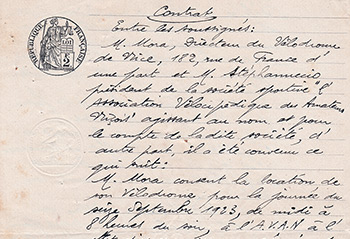 Contrat
Entre les soussignés:
M. Mora, Directeur du Vélodrome
de Nice, 182, rue de France d'
une part et M. Stephannecio
président de la société sportive "l'
Association Vélocipédique des Amateurs
Niçois" agissant au nom et pour
le compte de ladite société, d'
autre part, il a été convenu ce
qui suit:
M. Mora consent la location de
son Vélodrome pour la journée du
seize Septembre 1923, de midi à
8 heures du soir, à l'A.V.A.N à l'
RÉPUBLIQUE FRANÇAISE